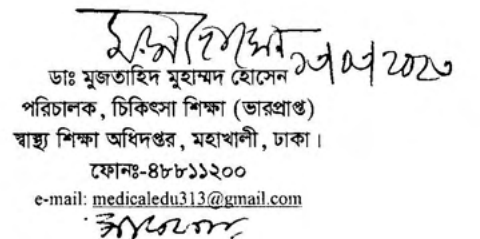 ডাঃ মুজতাহিদ মুহাম্মদ হোসেন
পরিচালক, চিকিৎসা শিক্ষা (ভারপ্রাপ্ত)
স্বাস্থ্য শিক্ষা অধিদপ্তর, মহাখালী, ঢাকা।
ফোনঃ-৪৮৮১১২০০
e-mail: medicaledu313@gmail.com